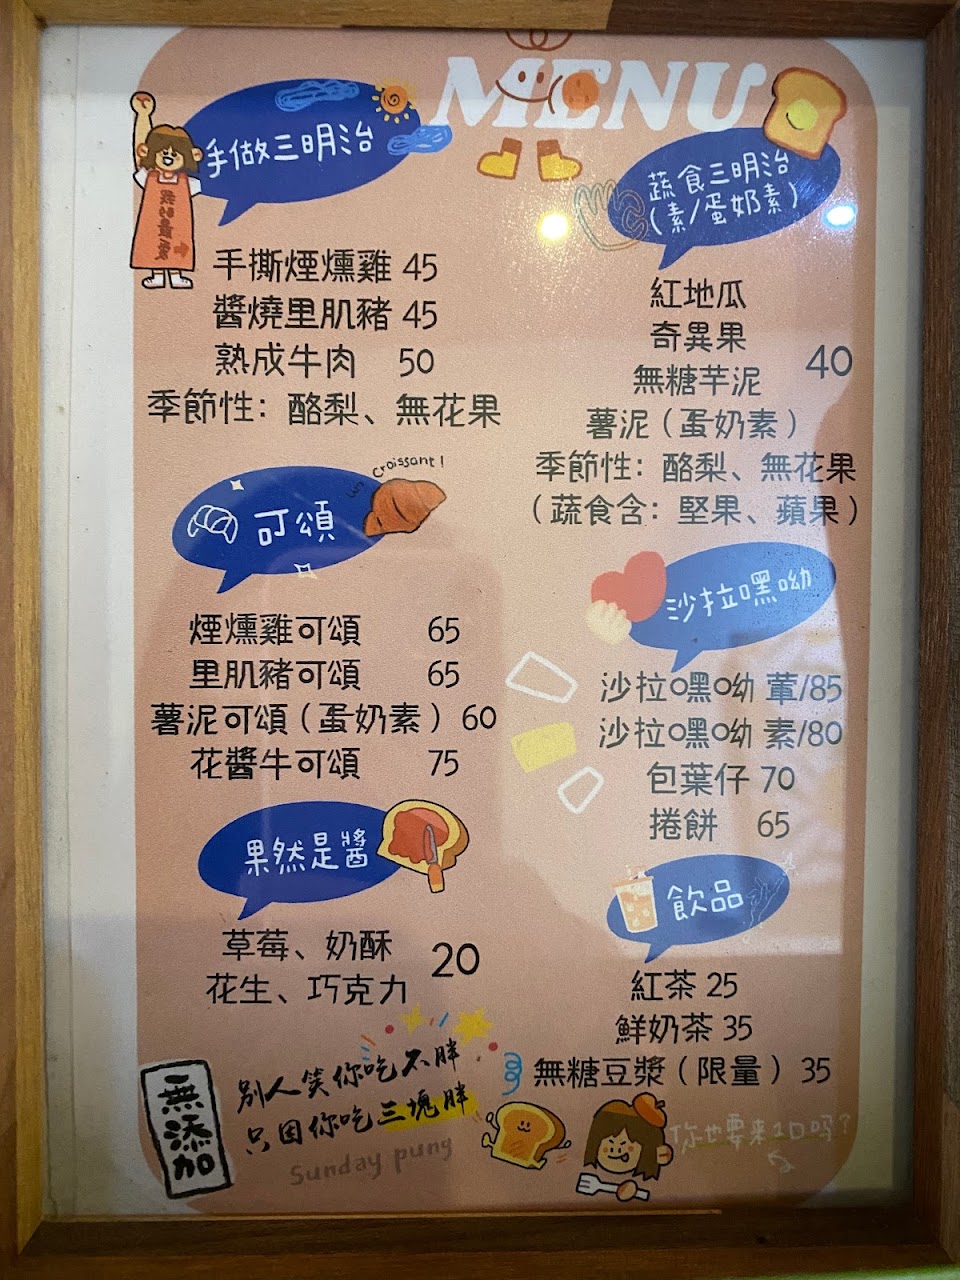 MENU
手做三明治
我的最愛
手撕煙燻雞 45
醬燒里肌豬 45
熟成牛肉 50
季節性：酪梨、無花果
蔬食三明治
(素/蛋奶素)
紅地瓜
奇異果
無糖芋泥
薯泥（蛋奶素）
40
季節性：酪梨、無花果
（蔬食含：堅果、蘋果）
Croissant!
可頌
煙燻雞可頌 65
里肌豬可頌 65
薯泥可頌（蛋奶素）60
花醬牛可頌 75
沙拉嘿呦
沙拉嘿呦 葷/85
沙拉嘿呦 素/80
包葉仔 70
捲餅 65
果然是醬
草莓、奶酥
花生、巧克力
20
飲品
紅茶 25
鮮奶茶 35
無糖豆漿（限量）35
無添加
別人笑你吃不胖
只因你吃三塊胖
Sunday pung
你也要來1口吗?